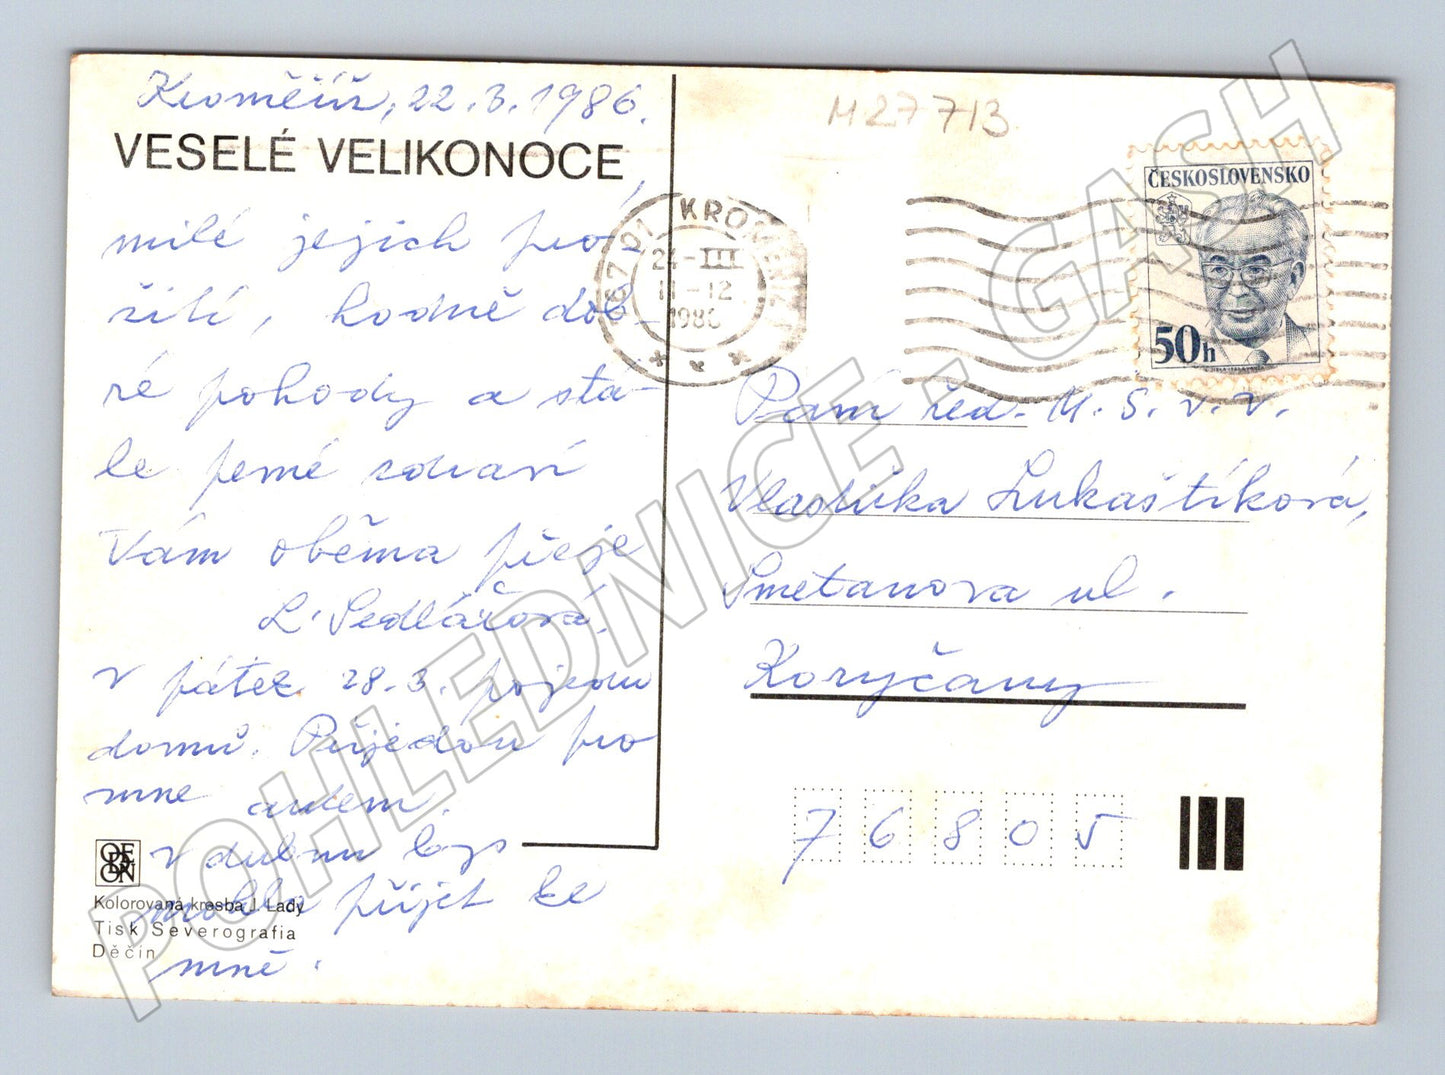 Kroměříž, 22.3.1986.
VESELÉ VELIKONOCE,
milé jejich pro-
žití, hodně dob-
ré pohody a stá-
le pevné zdraví
Vám oběma přeje
L. Sedláčová.
V pátek 28.3. pojedu
domů. Přijedou pro
mne autem.
V dubnu bys
mohla přijet ke
mně.
ODEON
Kolorovaná kresba J. Lady
Tisk Severografia
Děčín
M27713
767 01 KROMĚŘÍŽ 1
24-III
11-12
1986
ČESKOSLOVENSKO
50h
Paní řed. M.Š. v.v.
Vlastička Lukaštíková,
Smetanova ul.
Koryčany
76805
POHLEDNICE - GASH